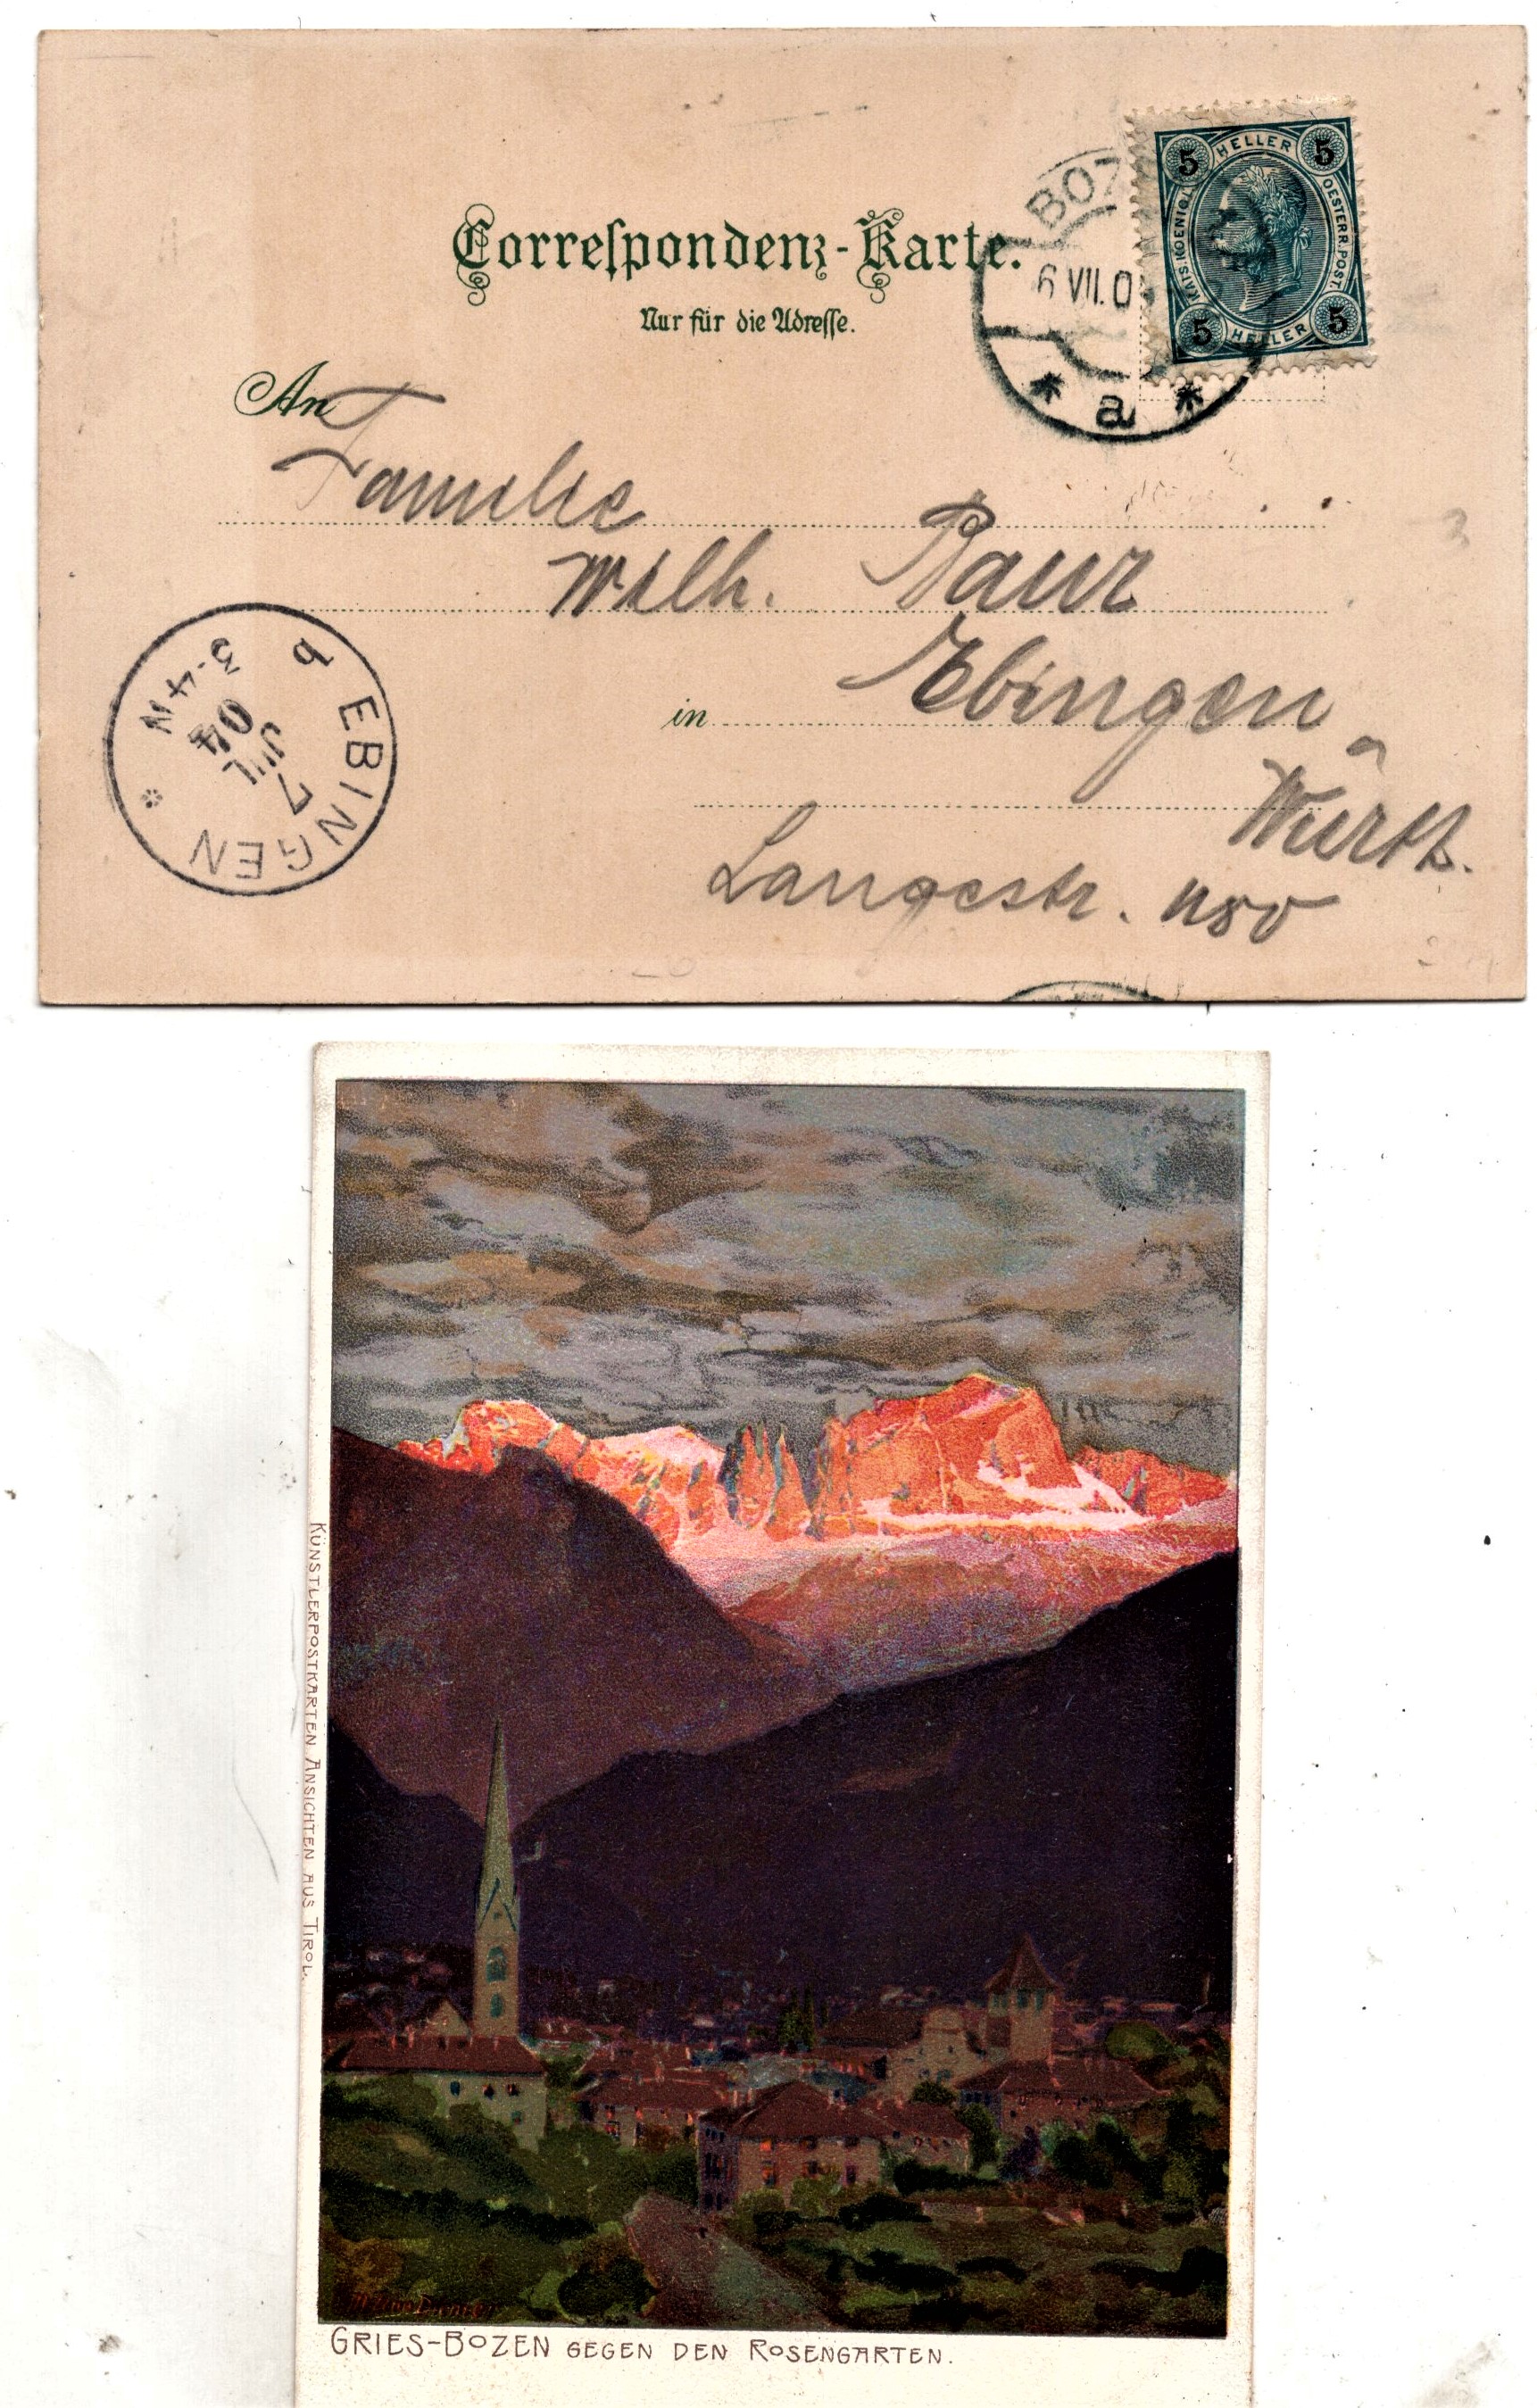 Correspondenz-Karte.
Nur für die Adresse.
BOZ
6 VII.0
* a *
5 HELLER 5
KAIS. KOENIGL.
OESTERR. POST.
5 HELLER 5
An
Familie
Wilh. Baur
in Ebingen
Württ.
Langestr.
b EBINGEN *
7
JUL
04
3-4N
KÜNSTLERPOSTKARTEN ANSICHTEN AUS TIROL.
GRIES-BOZEN GEGEN DEN ROSENGARTEN.